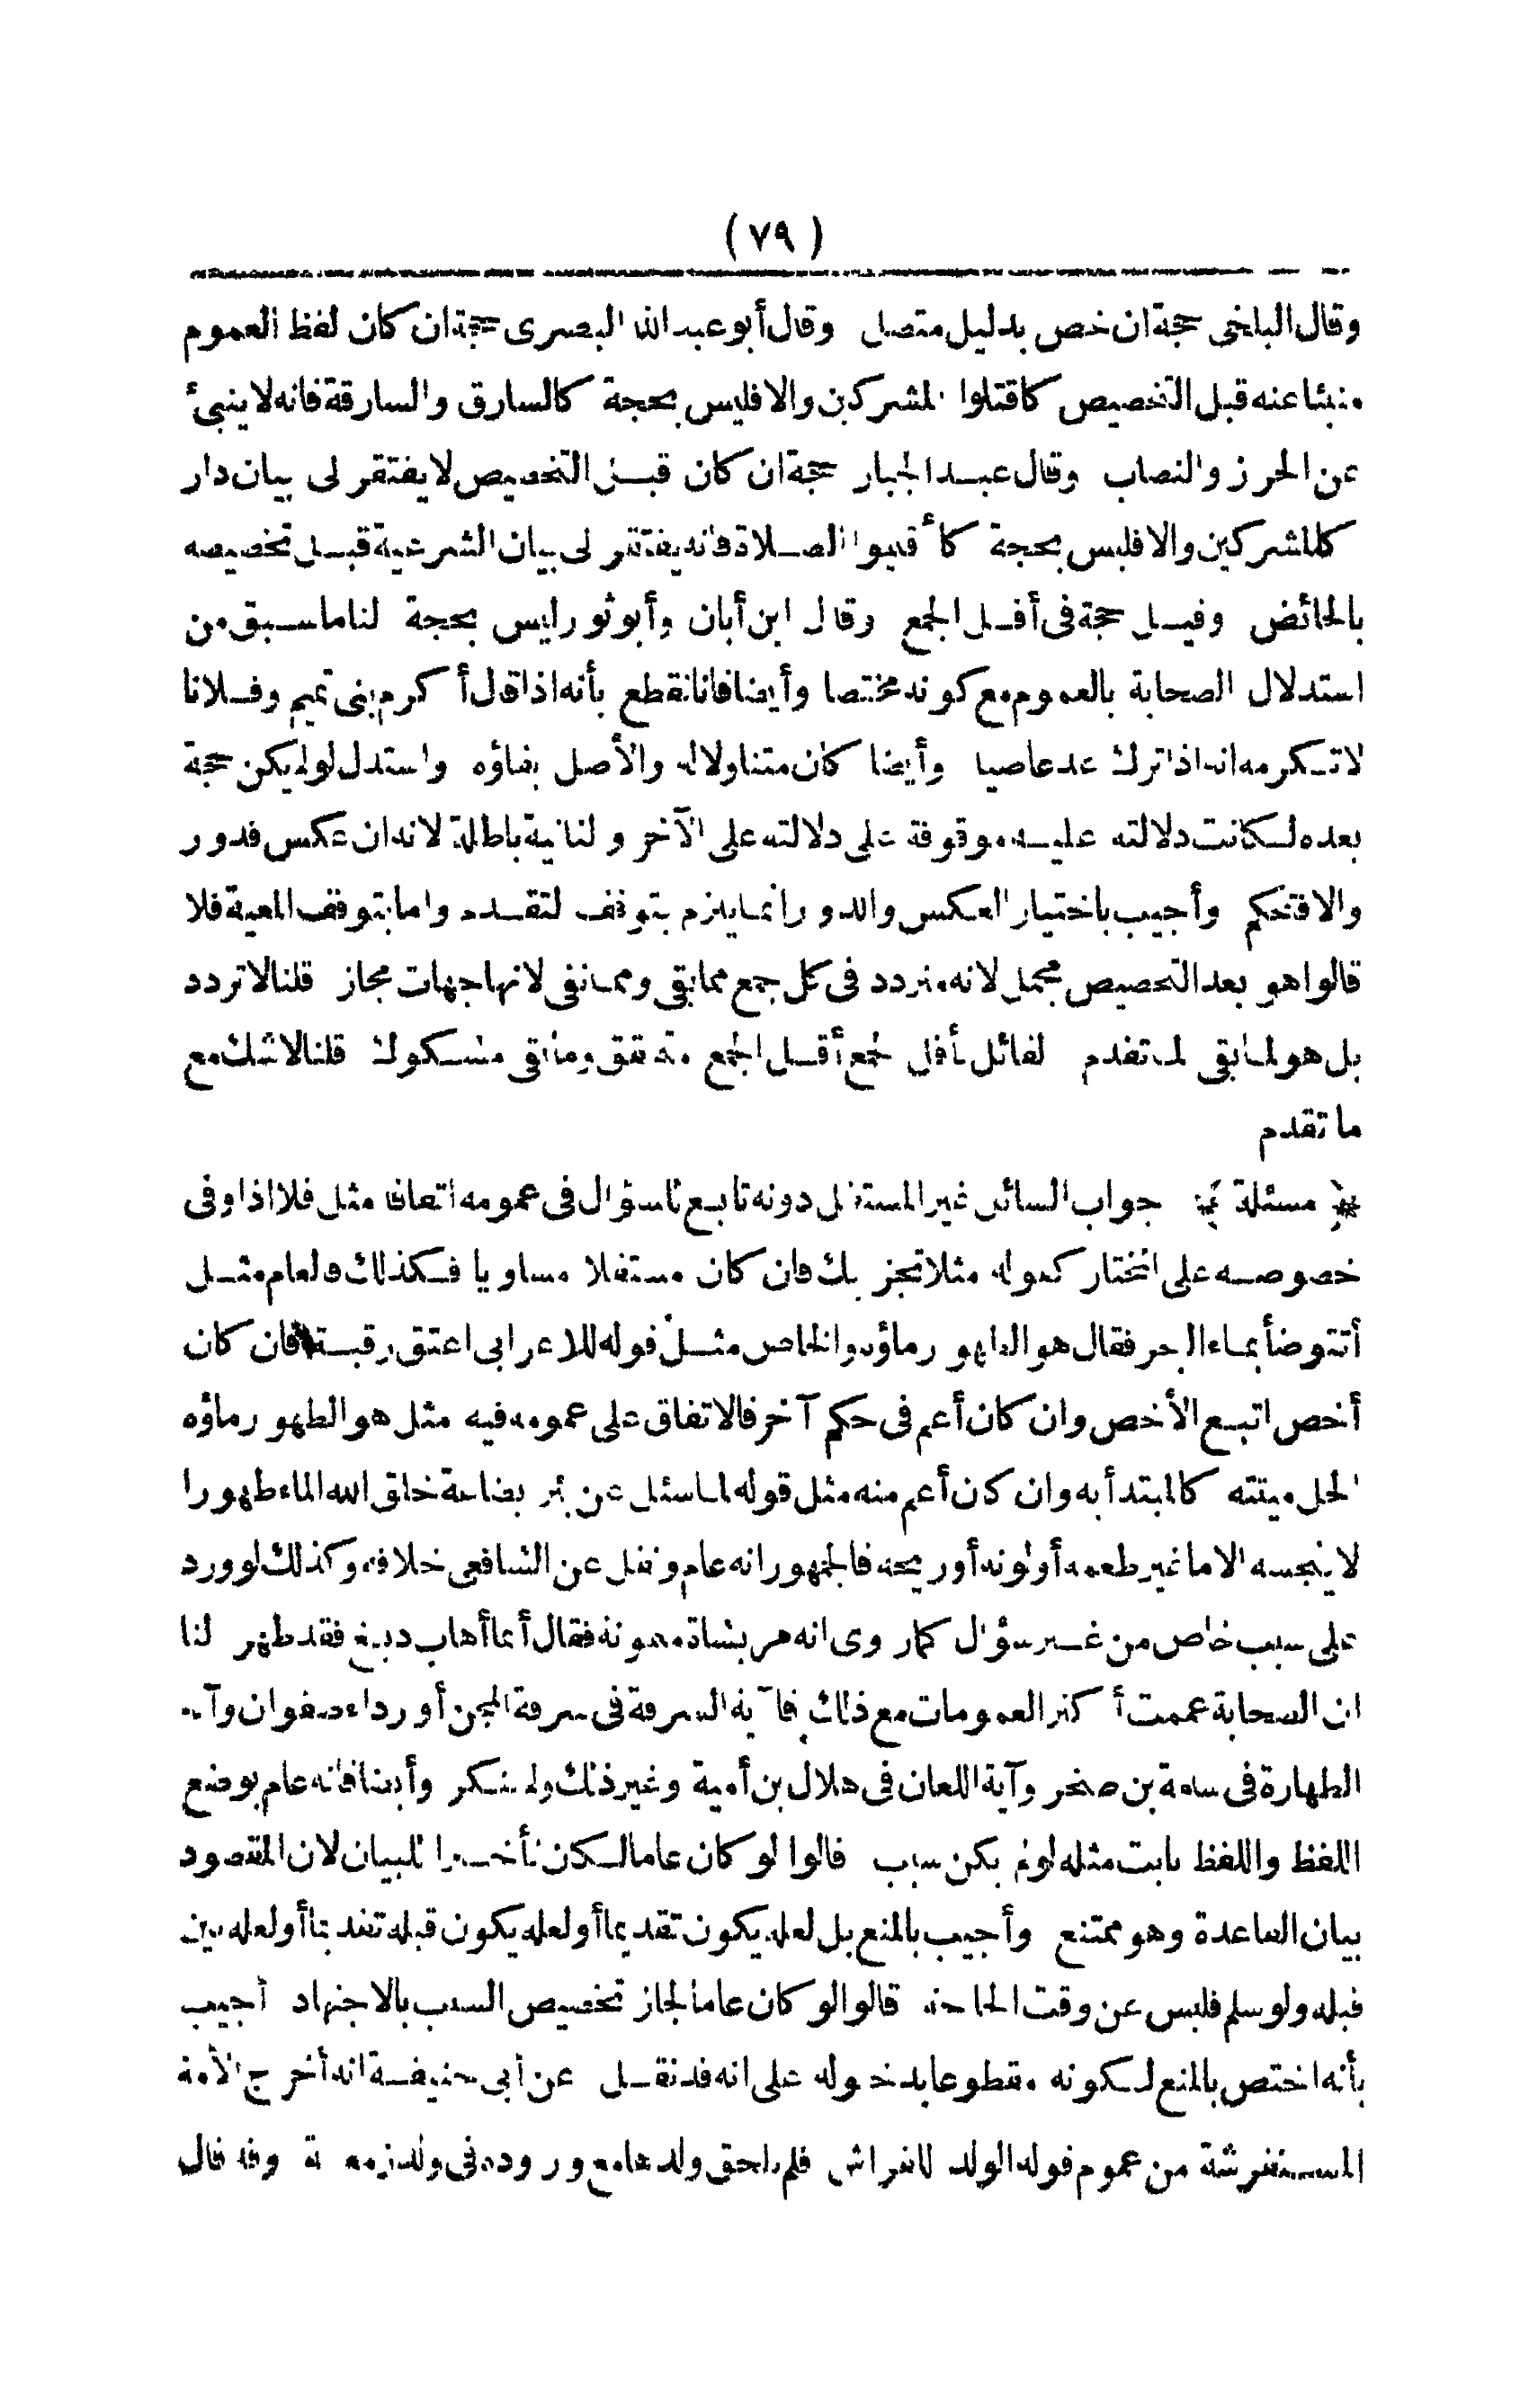 (٧٩)
وقال البلخى حجة ان خص بدليل متصل وقال أبو عبد الله البصرى حجة ان كان لفظ العموم
منبئا عنه قبل التخصيص كاقتلوا المشركين والا فليس بحجة كالسارق والسارقة فانه لا ينبئ
عن الحرز والنصاب وقال عبد الجبار حجة ان كان قبل التخصيص لا يفتقر الى بيان دار
كالمشركين والا فليس بحجة كأقيموا الصلاة فانه يفتقر الى بيان الشرعية قبل تخصيصه
بالحائض وقيل حجة فى أقل الجمع وقال ابن أبان وأبو ثور ليس بحجة لنا ما سبق من
استدلال الصحابة بالعموم مع كونه مختصا وأيضا فانا نقطع بأنه اذا قال أكرم بنى تميم وفلانا
لا تكرمه انه اذا ترك عد عاصيا وأيضا كان متناولا له والأصل بقاؤه واستدل لو لم يكن حجة
بعده لكانت دلالته عليه موقوفة على دلالته على الآخر والثانية باطلة لانه ان عكس فدور
والا فتحكم وأجيب باختيار العكس والدور انما يلزم بتوقف التقدم واما بتوقف المعية فلا
قالوا هو بعد التخصيص مجمل لانه متردد فى كل جمع مما بقى ومما نفى لانها جهات مجاز قلنا لا تردد
بل هو لما بقى لما تقدم القائل بأقل الجمع أقل الجمع متحقق وما بقى مشكوك قلنا لا شك مع
ما تقدم
﴿ مسئلة ﴾ جواب السائل غير المستقل دونه تابع للسؤال فى عمومه اتفاقا مثل فلا اذا وفى
خصوصه على المختار كقوله مثلا تجزيك فان كان مستقلا مساويا فكذلك والعام مثل
أنتوضأ بماء البحر فقال هو الطهور ماؤه والخاص مثل قوله للاعرابى اعتق رقبة فان كان
أخص اتبع الأخص وان كان أعم فى حكم آخر فالاتفاق على عمومه فيه مثل هو الطهور ماؤه
الحل ميتته كالمبتدأ به وان كان أعم منه مثل قوله لما سئل عن بئر بضاعة خلق الله الماء طهورا
لا ينجسه الا ما غير طعمه أو لونه أو ريحه فالجمهور انه عام ونقل عن الشافعى خلافه وكذلك لو ورد
على سبب خاص من غير سؤال كما روى انه مر بشاة ميمونة فقال أيما أهاب دبغ فقد طهر لنا
ان الصحابة عممت أكثر العمومات مع ذلك فآية السرقة فى سرقة المجن أو رداء صفوان وآية
الطهارة فى سلمة بن صخر وآية اللعان فى هلال بن أمية وغير ذلك ولم ينكر وأيضا فانه عام بوضع
اللفظ واللفظ ثابت مثله لو لم يكن سبب قالوا لو كان عاما لكان تأخيرا للبيان لان المقصود
بيان القاعدة وهو ممتنع وأجيب بالمنع بل لعله يكون تقديما أو لعله يكون قبله تقديما أو لعله بين
قبله ولو سلم فليس عن وقت الحاجة قالوا لو كان عاما لجاز تخصيص السبب بالاجتهاد أجيب
بأنه اختص بالمنع لكونه مقطوعا بدخوله على انه قد نقل عن أبى حنيفة انه أخرج الأمة
المستفرشة من عموم قوله الولد للفراش فلم يلحق ولدها مع وروده فى ولد زمعة وقد قال